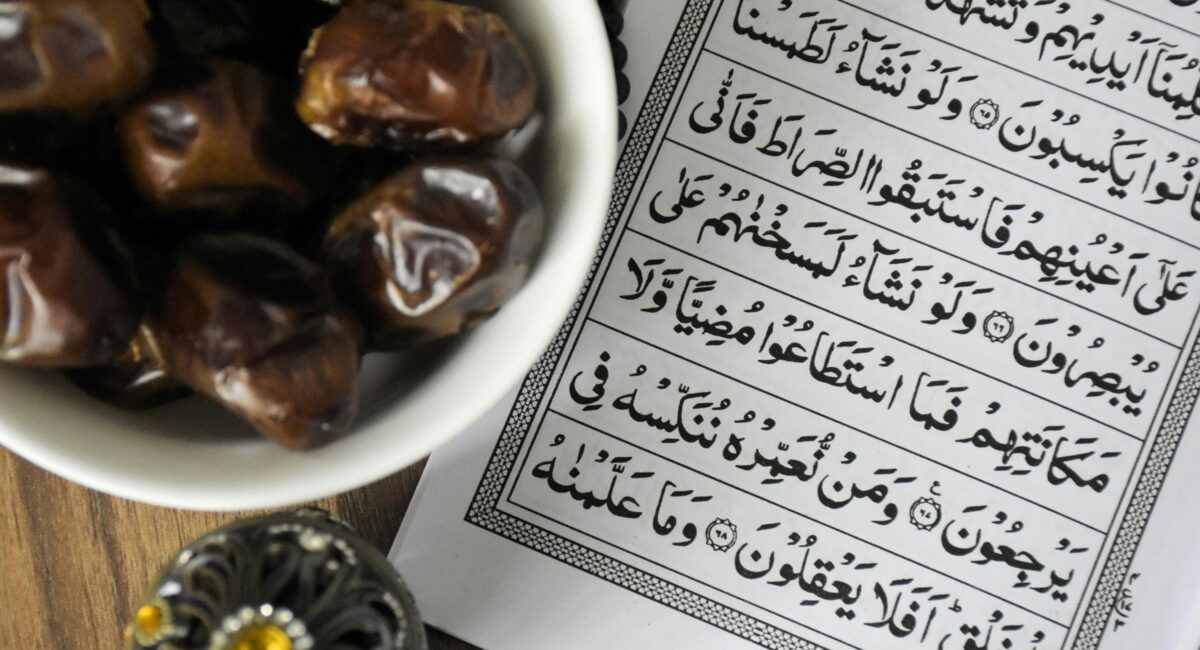 اَيْدِيْهِمْ وَتَشْهَدُ
انُوْا يَكْسِبُوْنَ ۝٦٥ وَلَوْ نَشَآءُ لَطَمَسْنَا
عَلٰٓى اَعْيُنِهِمْ فَاسْتَبَقُوا الصِّرَاطَ فَاَنّٰى
يُبْصِرُوْنَ ۝٦٦ وَلَوْ نَشَآءُ لَمَسَخْنٰهُمْ عَلٰى
مَكَانَتِهِمْ فَمَا اسْتَطَاعُوْا مُضِيًّا وَّلَا
يَرْجِعُوْنَ ۝٦٧ وَمَنْ نُّعَمِّرْهُ نُنَكِّسْهُ فِى
خَلْقِ ؕ اَفَلَا يَعْقِلُوْنَ ۝٦٨ وَمَا عَلَّمْنٰهُ